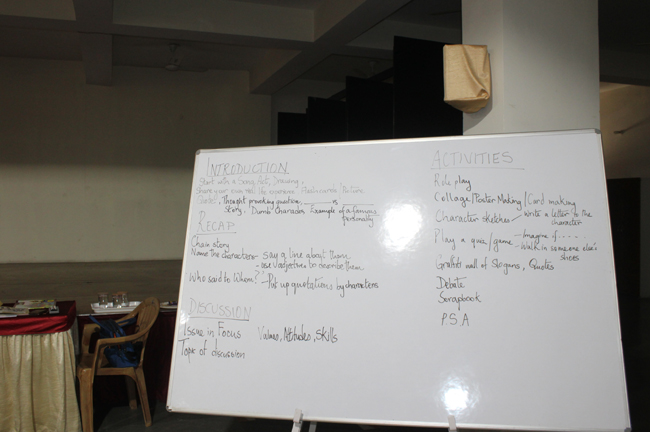 INTRODUCTION
Start with a Song, Act, Drawing,
Share your own
Flashcards/Picture
thought provoking question, vs
Story, Dumb Charades, Example of a famous
personality
RECAP
Chain story
Name the characters - say a line about them
- use 1 adjective to describe them
- Who said to Whom? - Put up quotations by characters
DISCUSSION
Issue in Focus Values, Attitudes, Skills
Topic of discussion
ACTIVITIES
Role play
Collage/Poster Making/Card making
Character sketches - Write a letter to the
character
Play a quiz/game - Imagine if.....
- Walk in someone else's
shoes
Graffiti wall of Slogans, Quotes
Debate
Scrapbook
P.S.A